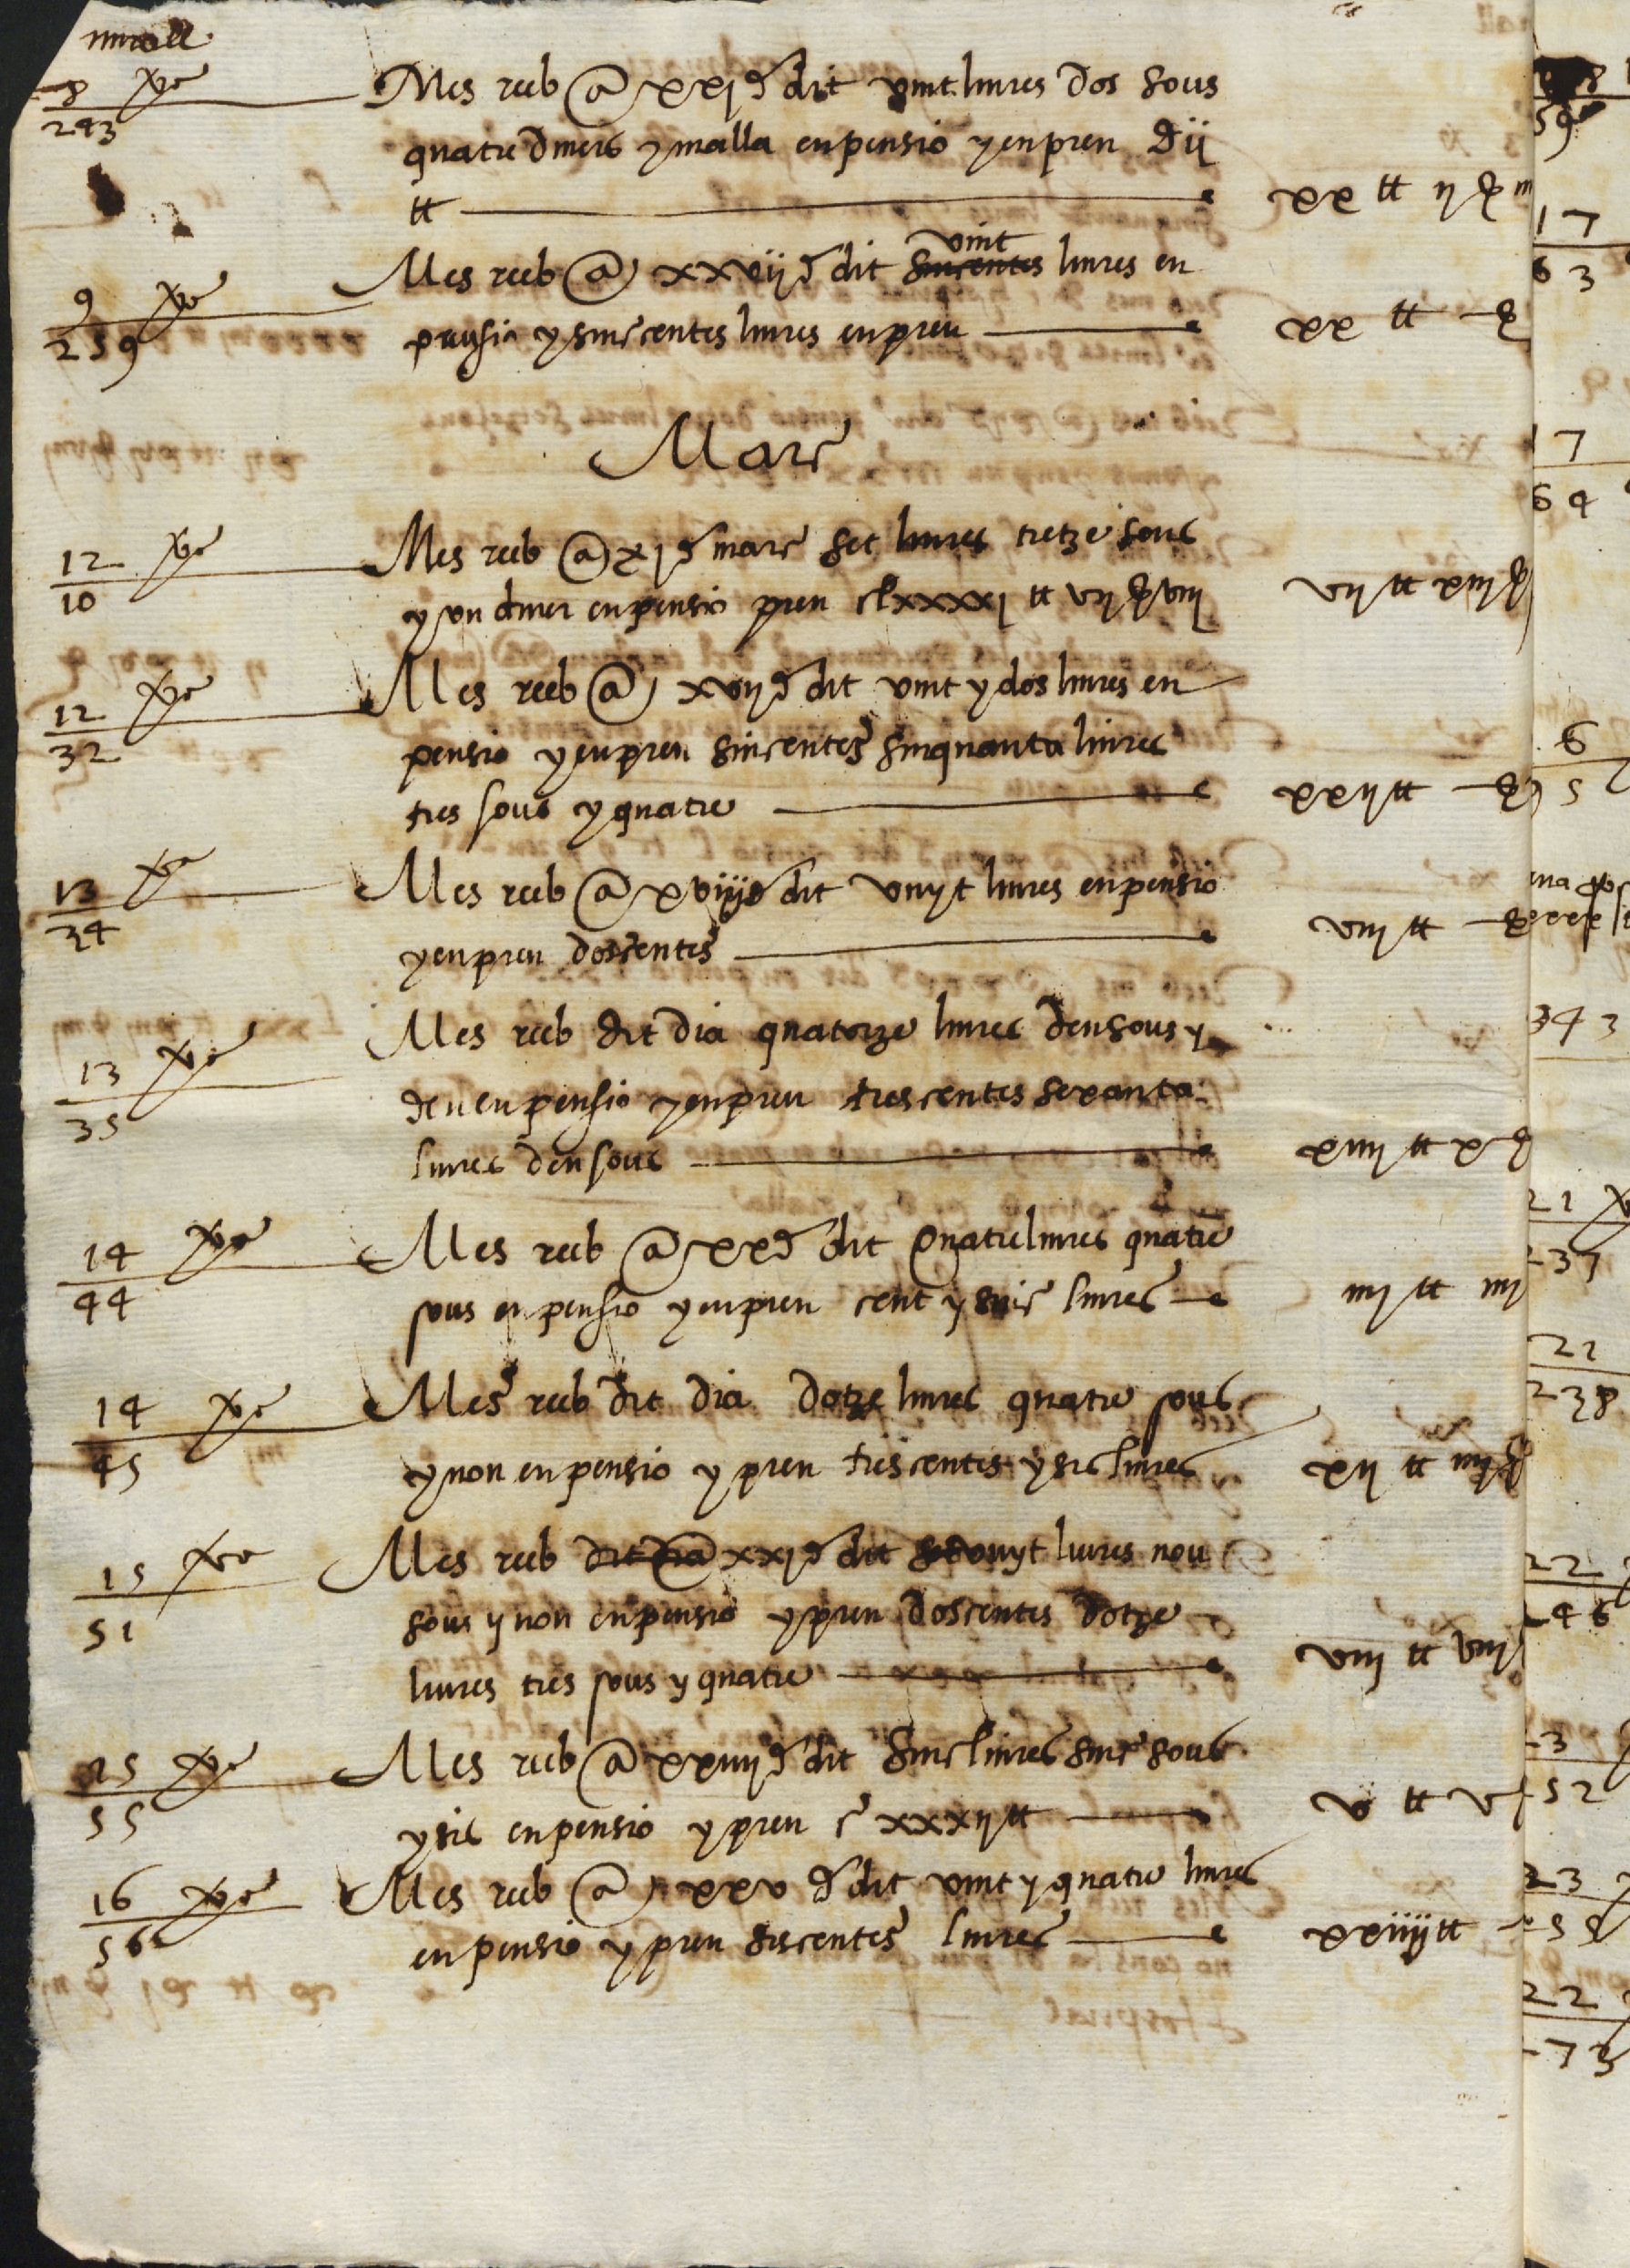 8
243
Mes reeb @ xxj d dit vint liures dos sous
quatre diners y malla en pensio y en preu Dij
tt
xx tt ij
9
259
Mes reeb @ xxvij d dit sincentes vint liures en
pensio y sinccentes liures en preu
xx tt
Marc
12
10
Mes reeb @ xj d marc set liures tretze sous
y vn diner en pensio pren clxxxxj tt vij viij
vij tt xiij
12
32
Mes reeb @ xvij d dit vint y dos liures en
pensio y en pren sincentes sinquanta liures
tres sous y quatre
xxij tt
13
34
Mes reeb @ xviiij d dit vuyt liures en pensio
y en pren doscentes
viij tt
13
35
Mes reeb dit dia quatorze liures deu sous y
deu en pensio y en preu trescentes sexanta
liures deu sous
xiiij tt x
14
44
Mes reeb @ xx d dit Quatre liures quatre
sous en pensio y en pren cent y sinc liures
iiij tt iiij
14
45
Mes reeb dit dia dotze liures quatre sous
y nou en pensio y pren trescentes y sis liures
xij tt iiij
15
51
Mes reeb dit dia xxj d dit vuyt liures nou
sous y nou en pensio y pren doscentes dotze
liures tres sous y quatre
viij tt viiij
15
55
Mes reeb @ xxiiij d dit Sinc liures sinc sous
y sis en pensio y pren c xxxij tt
v tt v
16
56
Mes reeb @ xxv d dit vint y quatre liures
en pensio y pren siscentes liures
xxiiij tt
17
63
17
64
6
343
21
237
21
238
22
246
23
52
23
22